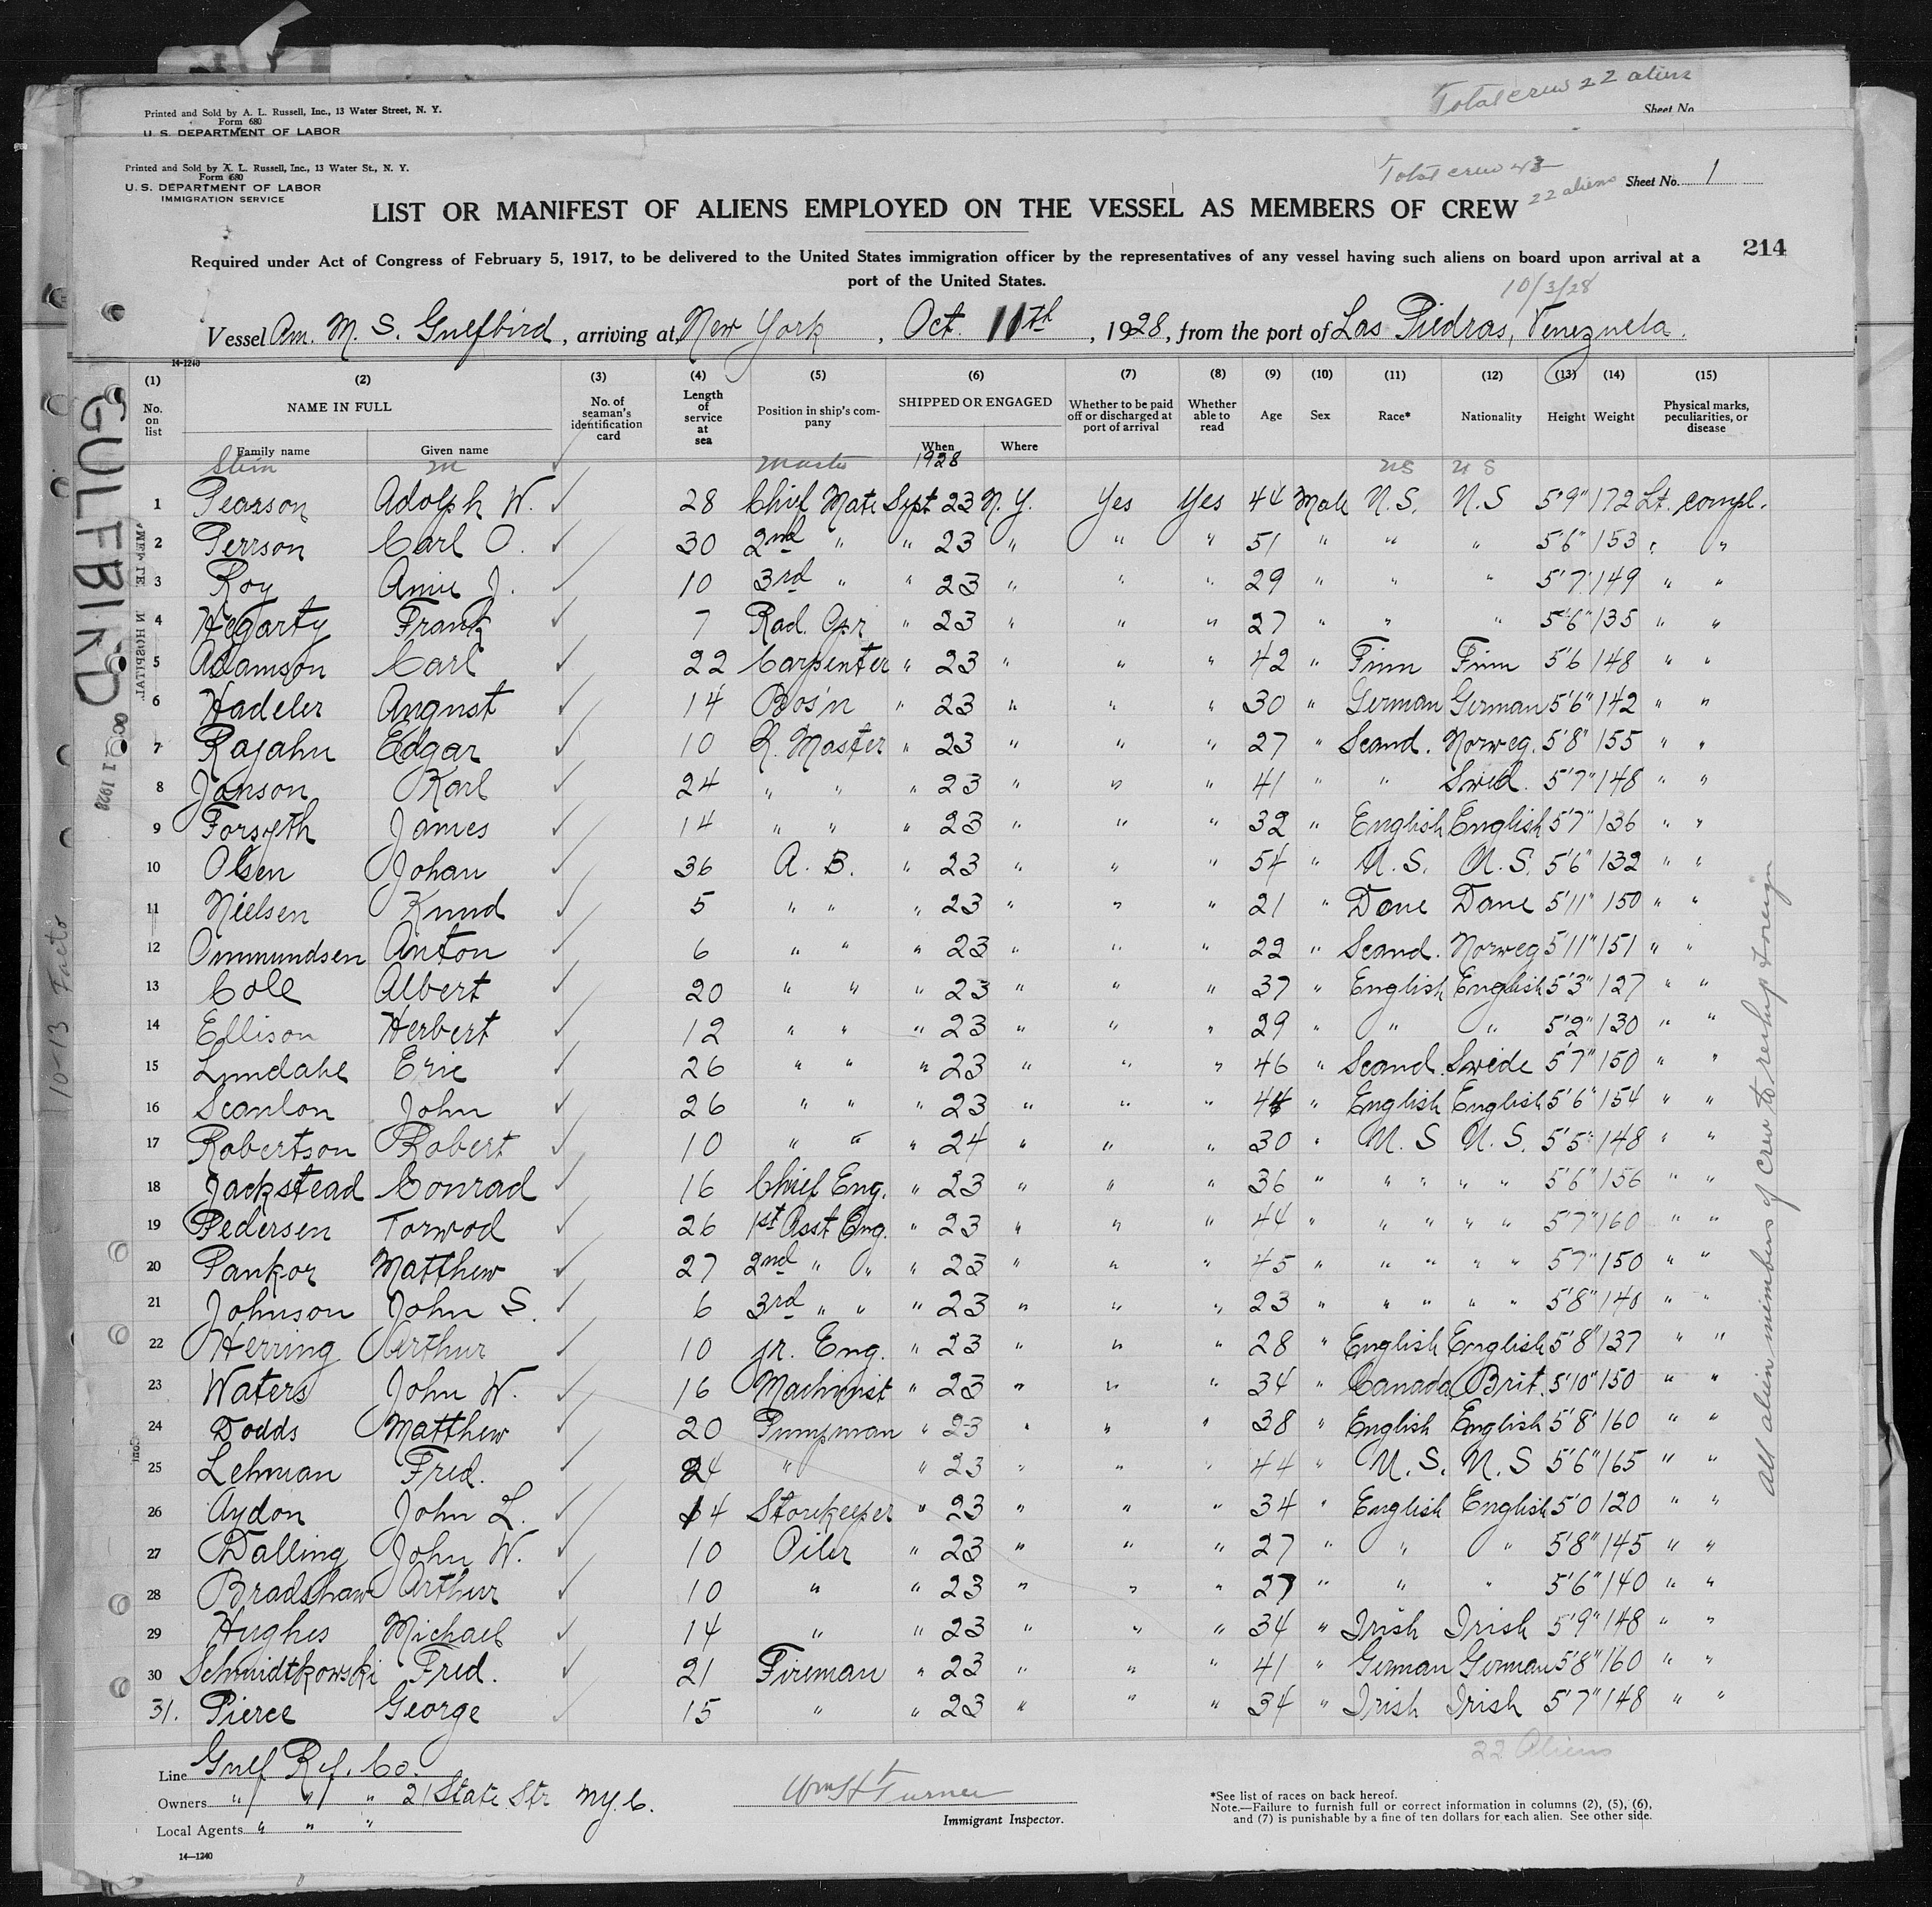 Total crew 22 aliens
Printed and Sold by A. L. Russell, Inc., 13 Water Street, N. Y.
Form 680
U. S. DEPARTMENT OF LABOR
Sheet No.
Printed and Sold by A. L. Russell, Inc., 13 Water St., N. Y.
Form 680
U. S. DEPARTMENT OF LABOR
IMMIGRATION SERVICE
Total crew 43
22 aliens
Sheet No. 1
LIST OR MANIFEST OF ALIENS EMPLOYED ON THE VESSEL AS MEMBERS OF CREW
214
Required under Act of Congress of February 5, 1917, to be delivered to the United States immigration officer by the representatives of any vessel having such aliens on board upon arrival at a
port of the United States.
10/3/28
Vessel Am. M. S. Gulfbird, arriving at New York, Oct. 11th, 1928, from the port of Las Piedras, Venezuela.
14-1240
(1) (2) (3) (4) (5) (6) (7) (8) (9) (10) (11) (12) (13) (14) (15)
No. on list NAME IN FULL No. of seaman's identification card Length of service at sea Position in ship's company SHIPPED OR ENGAGED Whether to be paid off or discharged at port of arrival Whether able to read Age Sex Race* Nationality Height Weight Physical marks, peculiarities, or disease
Family name Given name When Where
Stein M ✓ Master 1928 US US
1 Pearson Adolph W. ✓ 28 Chief Mate Sept 23 N.Y. Yes Yes 44 Male U.S. U.S 5'9" 172 Lt. compl.
2 Perrson Carl O. ✓ 30 2nd " " 23 " " " 51 " " " 5'6" 153 " "
3 Roy Amie J. ✓ 10 3rd " " 23 " " " 29 " " " 5'7" 149 " "
4 Hegarty Frank ✓ 7 Rad. Opr " 23 " " " 27 " " " 5'6" 135 " "
5 Adamson Carl ✓ 22 Carpenter " 23 " " " 42 " Finn Finn 5'6 148 " "
6 Hadeler August ✓ 14 Bos'n " 23 " " " 30 " German German 5'6" 142 " "
7 Rajahn Edgar ✓ 10 Q. Master " 23 " " " 27 " Scand. Norweg. 5'8" 155 " "
8 Janson Karl ✓ 24 " " " 23 " " " 41 " " Swed. 5'7" 148 " "
9 Forsyth James ✓ 14 " " " 23 " " " 32 " English English 5'7" 136 " "
10 Olsen Johan ✓ 36 A. B. " 23 " " " 54 " U.S. U.S. 5'6" 132 " "
11 Nielsen Knud ✓ 5 " " " 23 " " " 21 " Dane Dane 5'11" 150 " "
12 Ommundsen Anton ✓ 6 " " " 23 " " " 22 " Scand. Norweg 5'11" 151 " "
13 Cole Albert ✓ 20 " " " 23 " " " 37 " English English 5'3" 127 " "
14 Ellison Herbert ✓ 12 " " " 23 " " " 29 " " " 5'2" 130 " "
15 Lundahl Eric ✓ 26 " " " 23 " " " 46 " Scand. Swede 5'7" 150 " "
16 Scanlon John ✓ 26 " " " 23 " " " 44 " English English 5'6" 154 " "
17 Robertson Robert ✓ 10 " " " 24 " " " 30 " U.S U.S. 5'5" 148 " "
18 Jackstead Conrad ✓ 16 Chief Eng. " 23 " " " 36 " " " " " 5'6" 156 " "
19 Pedersen Torwod ✓ 26 1st Asst Eng. " 23 " " " 44 " " " " " 5'7" 160 " "
20 Pankor Matthew ✓ 27 2nd " " " 23 " " " 45 " " " " " 5'7" 150 " "
21 Johnson John S. ✓ 6 3rd " " " 23 " " " 23 " " " " " 5'8" 148 " "
22 Herring Arthur ✓ 10 jr. Eng. " 23 " " " 28 " English English 5'8" 137 " "
23 Waters John W. ✓ 16 Machinist " 23 " " " 34 " Canada Brit. 5'10" 150 " "
24 Dodds Matthew ✓ 20 Pumpman " 23 " " " 38 " English English 5'8" 160 " "
25 Lehman Fred. ✓ 24 " " 23 " " " 44 " U.S. U.S 5'6" 165 " "
26 Aydon John L. ✓ 14 Storekeeper " 23 " " " 34 " English English 5'0 120 " "
27 Dalling John W. ✓ 10 Oiler " 23 " " " 27 " " " 5'8" 145 " "
28 Bradshaw Arthur ✓ 10 " " 23 " " " 27 " " " 5'6" 140 " "
29 Hughes Michael ✓ 14 " " 23 " " " 34 " Irish Irish 5'9" 148 " "
30 Schmidtkowski Fred. ✓ 21 Fireman " 23 " " " 41 " German German 5'8" 160 " "
31. Pierce George ✓ 15 " " 23 " " " 34 " Irish Irish 5'7" 148 " "
22 Aliens
Line Gulf Ref. Co.
Owners " " " 21 State Str N.Y.C.
Local Agents " " "
Wm H Turner
Immigrant Inspector.
*See list of races on back hereof.
Note.—Failure to furnish full or correct information in columns (2), (5), (6),
and (7) is punishable by a fine of ten dollars for each alien. See other side.
14—1240
GULFBIRD
1 1928
IN HOSPITAL
10-13 Facto
All alien members of crew to reship foreign